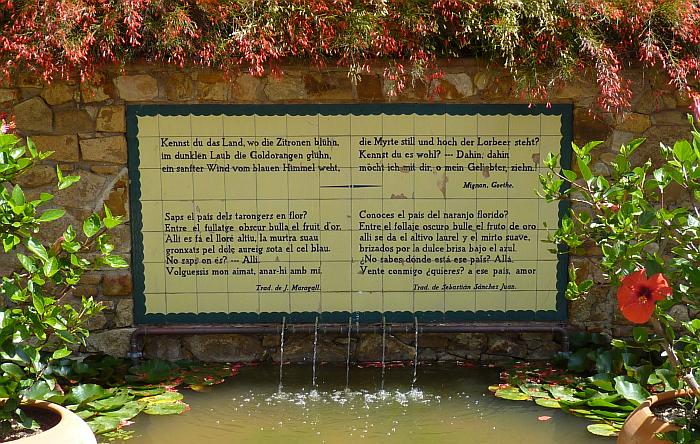 Kennst du das Land, wo die Zitronen blühn,
im dunklen Laub die Goldorangen glühn,
ein sanfter Wind vom blauen Himmel weht,
die Myrte still und hoch der Lorbeer steht?
Kennst du es wohl? --- Dahin, dahin
möcht ich mit dir, o mein Geliebter, ziehn.
Mignon, Goethe.
Saps el país dels tarongers en flor?
Entre el fullatge obscur bulla el fruit d'or.
Alli es fá el lloré altiu, la murtra suau
gronxats pel dólç aureig sota el cel blau.
No saps on és? --- Allá,
Volguessis mon aimat, anar-hi amb mí.
Trad. de J. Maragall.
Conoces el país del naranjo florido?
Entre el follaje oscuro bulle el fruto de oro
alli se da el altivo laurel y el mirto suave,
brizados por la dulce brisa bajo el azul.
¿No sabes dónde está? --- Allá,
Vente conmigo ¿quieres? a ese país, amor
Trad. de Sebastián Sánchez Juan.